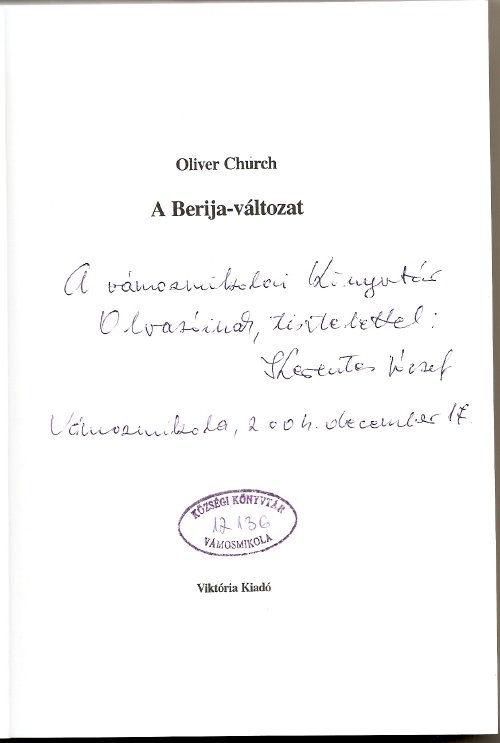 Oliver Church
A Berija-változat
A vámosmikolai Könyvtár
Olvasóinak, tisztelettel:
József
Vámosmikola, 2004. december 17.
KÖZSÉGI KÖNYVTÁR
12136
VÁMOSMIKOLA
Viktória Kiadó